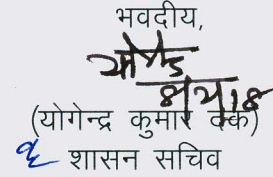 भवदीय,
(योगेन्द्र कुमार दक)
शासन सचिव